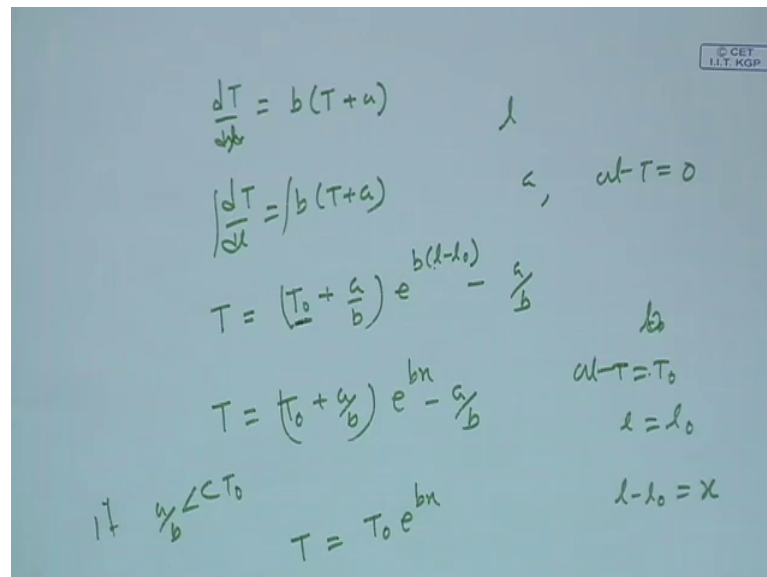 © CET
I.I.T. KGP
dT/dl = b(T+a) l
∫dT/dl = ∫b(T+a) a, at T=0
T = (T₀ + a/b) e^{b(l-l₀)} - a/b
at T=T₀
T = (T₀ + a/b) e^{bx} - a/b
l = l₀
if a/b << T₀ l-l₀ = x
T = T₀ e^{bx}